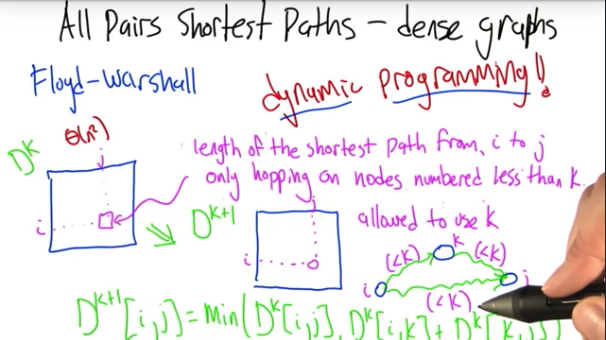 All Pairs Shortest Paths – dense graphs
Floyd-Warshall
dynamic programming!
D^k
Θ(n²)
j
i
length of the shortest path from i to j
only hopping on nodes numbered less than k.
allowed to use k
D^{k+1}
j
i
(<k)
k
(<k)
i
j
(<k)
D^{k+1}[i,j] = min(D^k[i,j], D^k[i,k] + D^k[k,j])